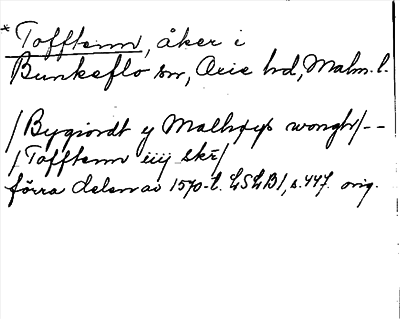 * Tofftenn, åker i
Bunkeflo sn, Oxie hd, Malm. l.
/Bygiordt y Malthxps wongh/--
/Tofftenn iiij skr/
förra delen av 1570-t. LSLB1, s. 447. orig.